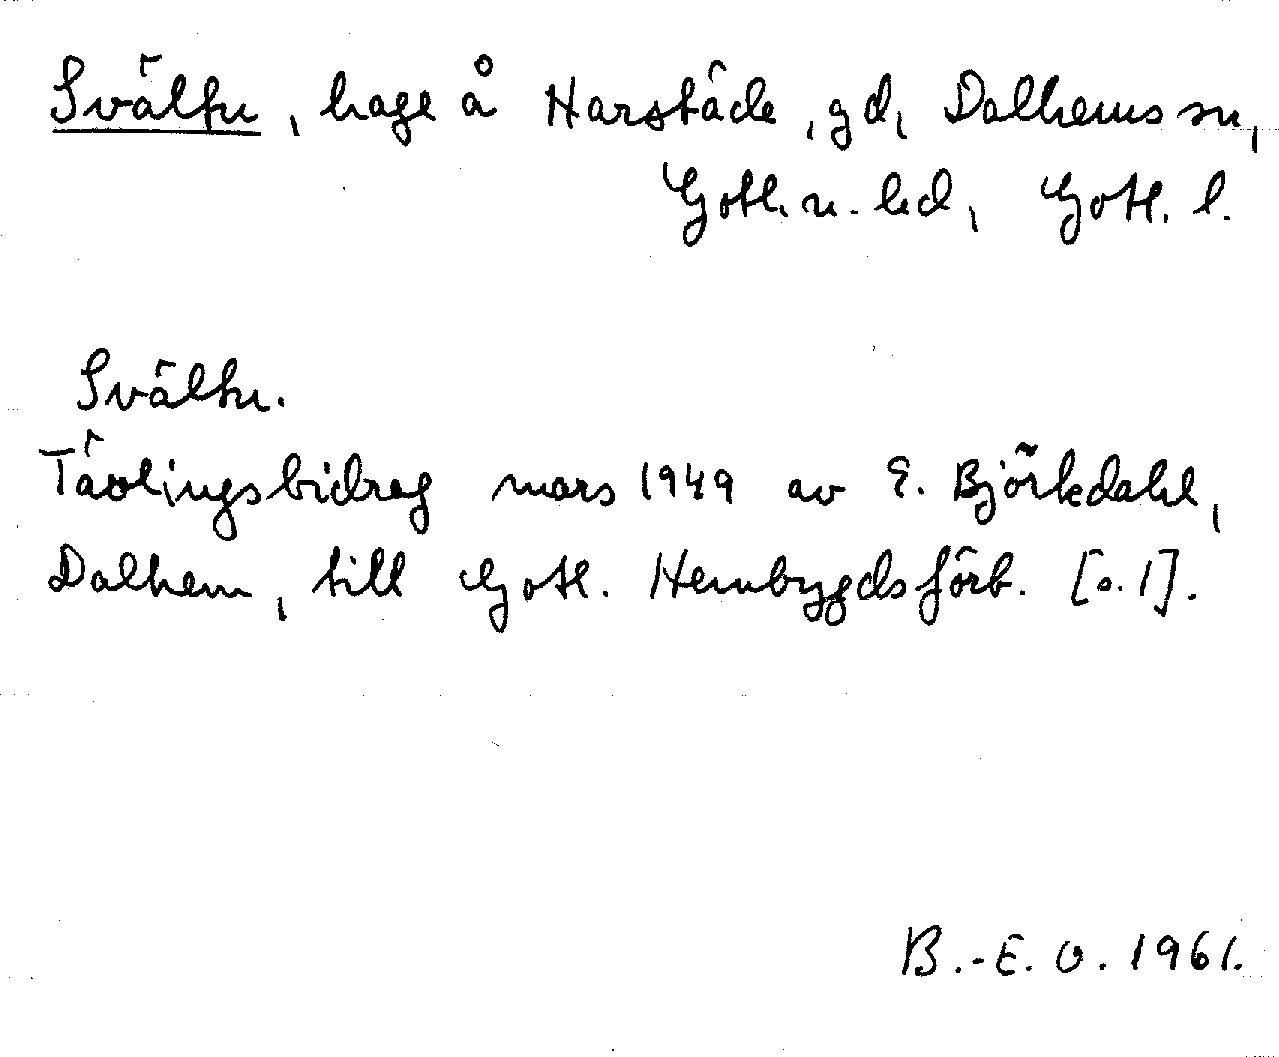 Svältu, hage å Harstäde, gd, Dalhems sn,
Gotl. n. hd, Gotl. l.
Svältu.
Tävlingsbidrag mars 1949 av E. Björkdahl,
Dalhem, till Gotl. Hembygdsförb. [s. 1].
B.-E. O. 1961.